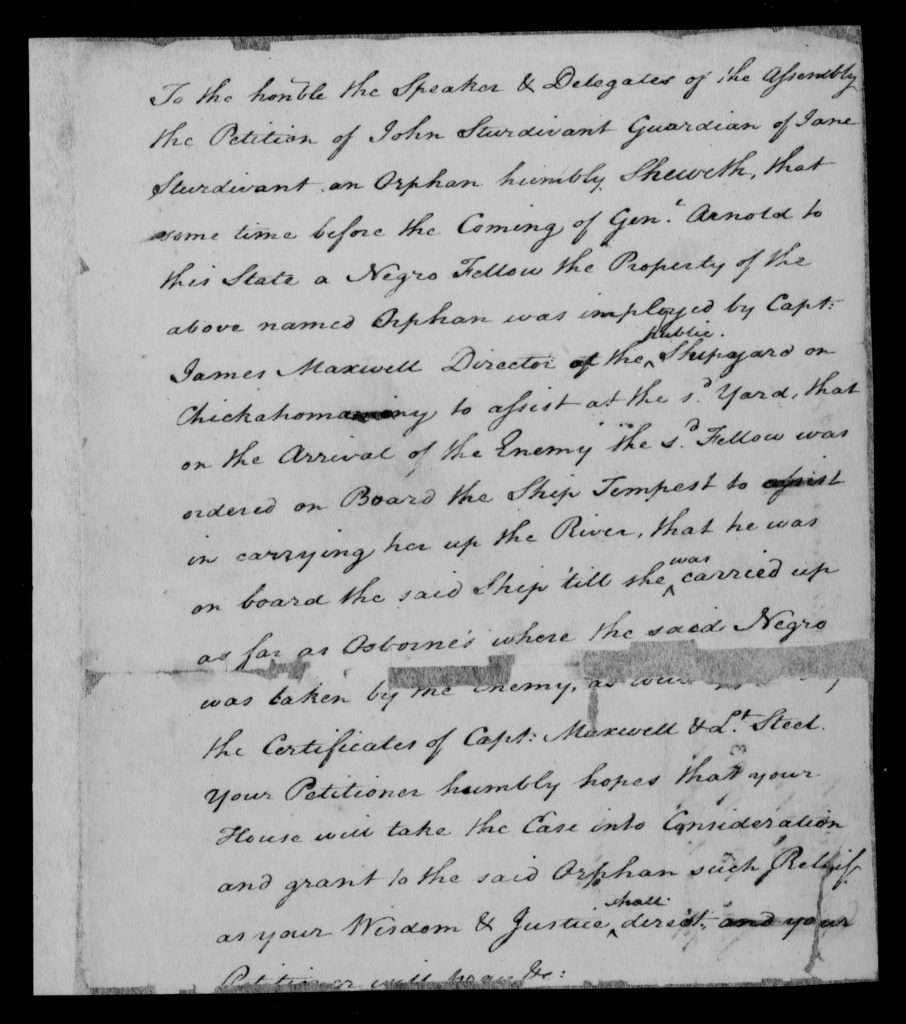 To the honble the Speaker & Delegates of the Assembly
the Petition of John Sturdivant Guardian of Jane
Sturdivant an Orphan humbly Sheweth, that
some time before the Coming of Genl Arnold to
this State a Negro Fellow the Property of the
above named Orphan was imployed by Capt:
James Maxwell Director of the public Shipyard on
Chickahominy to assist at the sd Yard, that
on the Arrival of the Enemy the sd Fellow was
ordered on Board the Ship Tempest to assist
in carrying her up the River, that he was
on board the said Ship till she was carried up
as far as Osborne's where the said Negro
was taken by the Enemy, as will
the Certificates of Capt: Maxwell & Lt Steel.
Your Petitioner humbly hopes that your
House will take the Case into Consideration
and grant to the said Orphan such Relief
as your Wisdom & Justice shall direct, and your
Petitioner will pray &c: